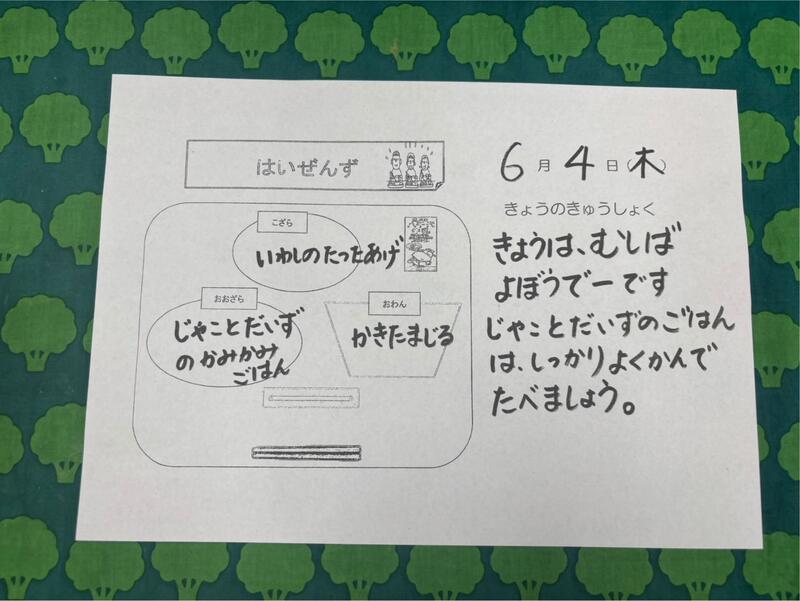 はいぜんず
こざら
いわしのたつたあげ
おおざら
じゃことだいず
のかみかみ
ごはん
おわん
かきたまじる
6月4日(木)
きょうのきゅうしょく
きょうは、むしば
よぼうでーです
じゃことだいずのごはん
は、しっかりよくかんで
たべましょう。